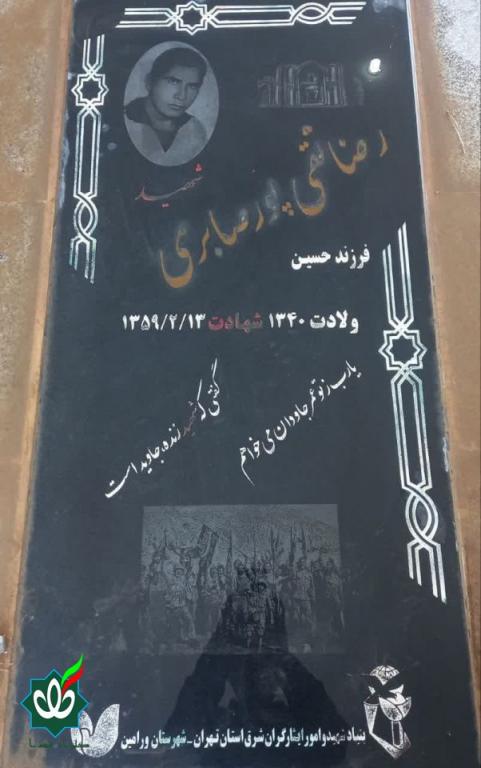 شهید
رضا نقی پور صابری
فرزند حسین
ولادت ۱۳۴۰ شهادت ۱۳۵۹/۲/۱۳
یارب ز تو عمر جاودان می خواهم
گفتی که شهید زنده جاوید است
بنیاد شهید و امور ایثارگران شرق استان تهران - شهرستان ورامین